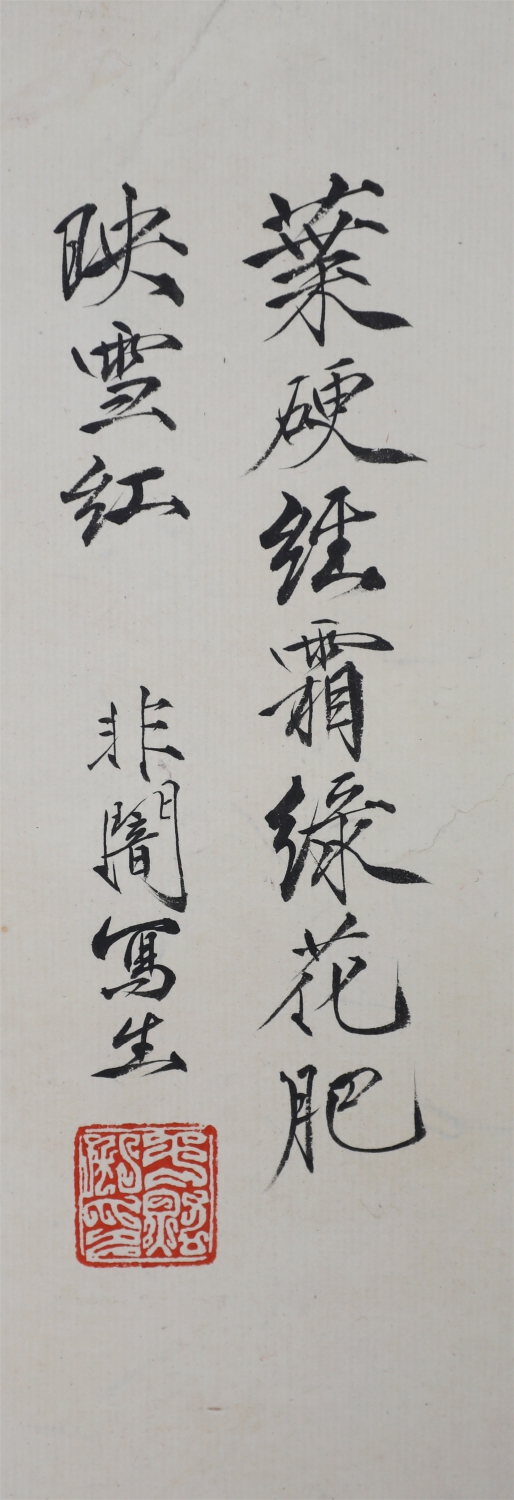 葉硬經霜綠花肥
映雪紅
非闇寫生